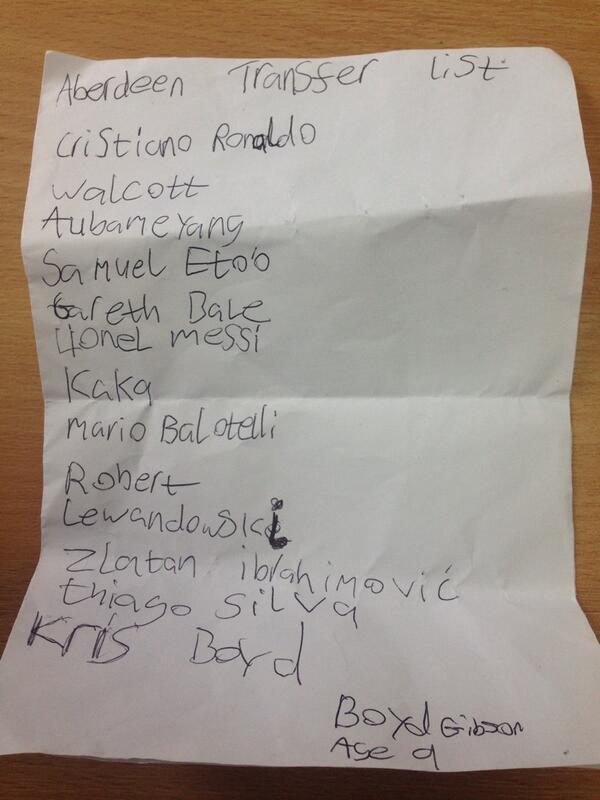 Aberdeen Transfer List
Cristiano Ronaldo
Walcott
Aubameyang
Samuel Eto'o
Gareth Bale
Lionel messi
Kaka
Mario Balotelli
Robert
Lewandowski
Zlatan ibrahimović
thiago Silva
Kris Boyd
Boyd Gibson
Age 9